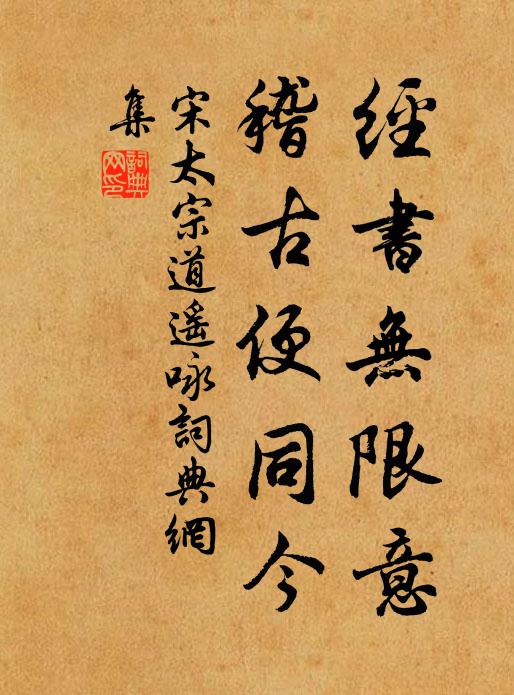 經書無限意
稽古便同今
宋太宗道遥咏詞典網
集
詞典
网印